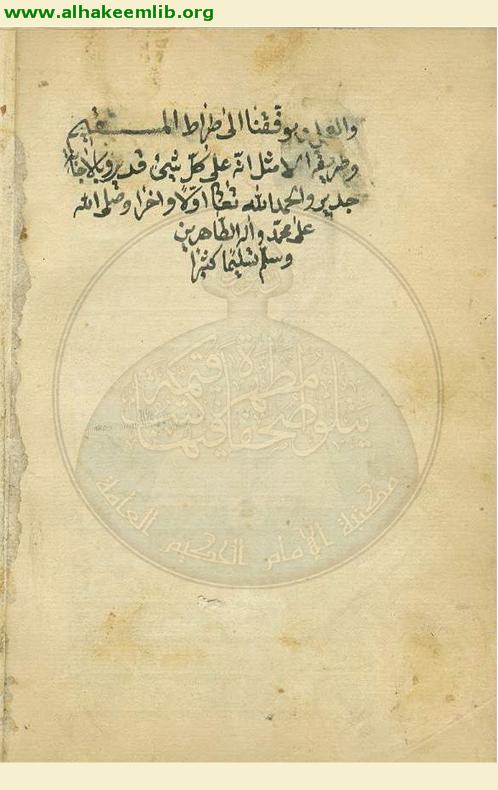 www.alhakeemlib.org
والعلن يوفقنا الى طراط المستقيم
وطريقه الامثل انه على كل شئ قدير وبالاجابة
جدير والحمد الله تعالى اولا واخرا وصلى الله
على محمد واله الطاهرين
وسلم تسليما كثيرا
يتلو صحفا مطهرة فيها كتب قيمة
مكتبة الإمام الحكيم العامة